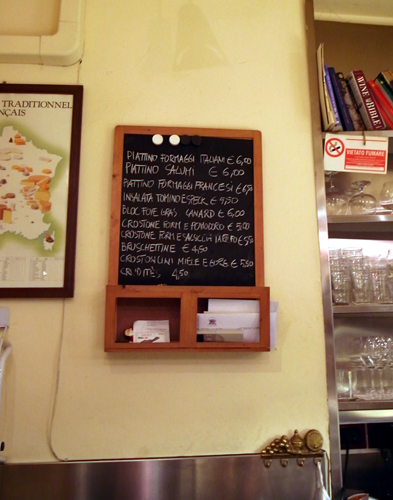 TRADITIONNEL
ÇAIS
PIATTINO FORMAGGI ITALIANI € 6,00
PIATTINO SALUMI € 6,00
PIATTINO FORMAGGI FRANCESI € 6,50
INSALATA TOMINO E SPECK € 4,50
BLOC FOIE GRAS CANARD € 6,00
CROSTONE FORM E POMODORO € 5,00
CROSTONE FORM E SALSICCIA € 5,50
BRUSCHETTINE € 4,50
CROSTONCINI MIELE E € 5,50
4,50
VIETATO FUMARE
WINE BIBLE